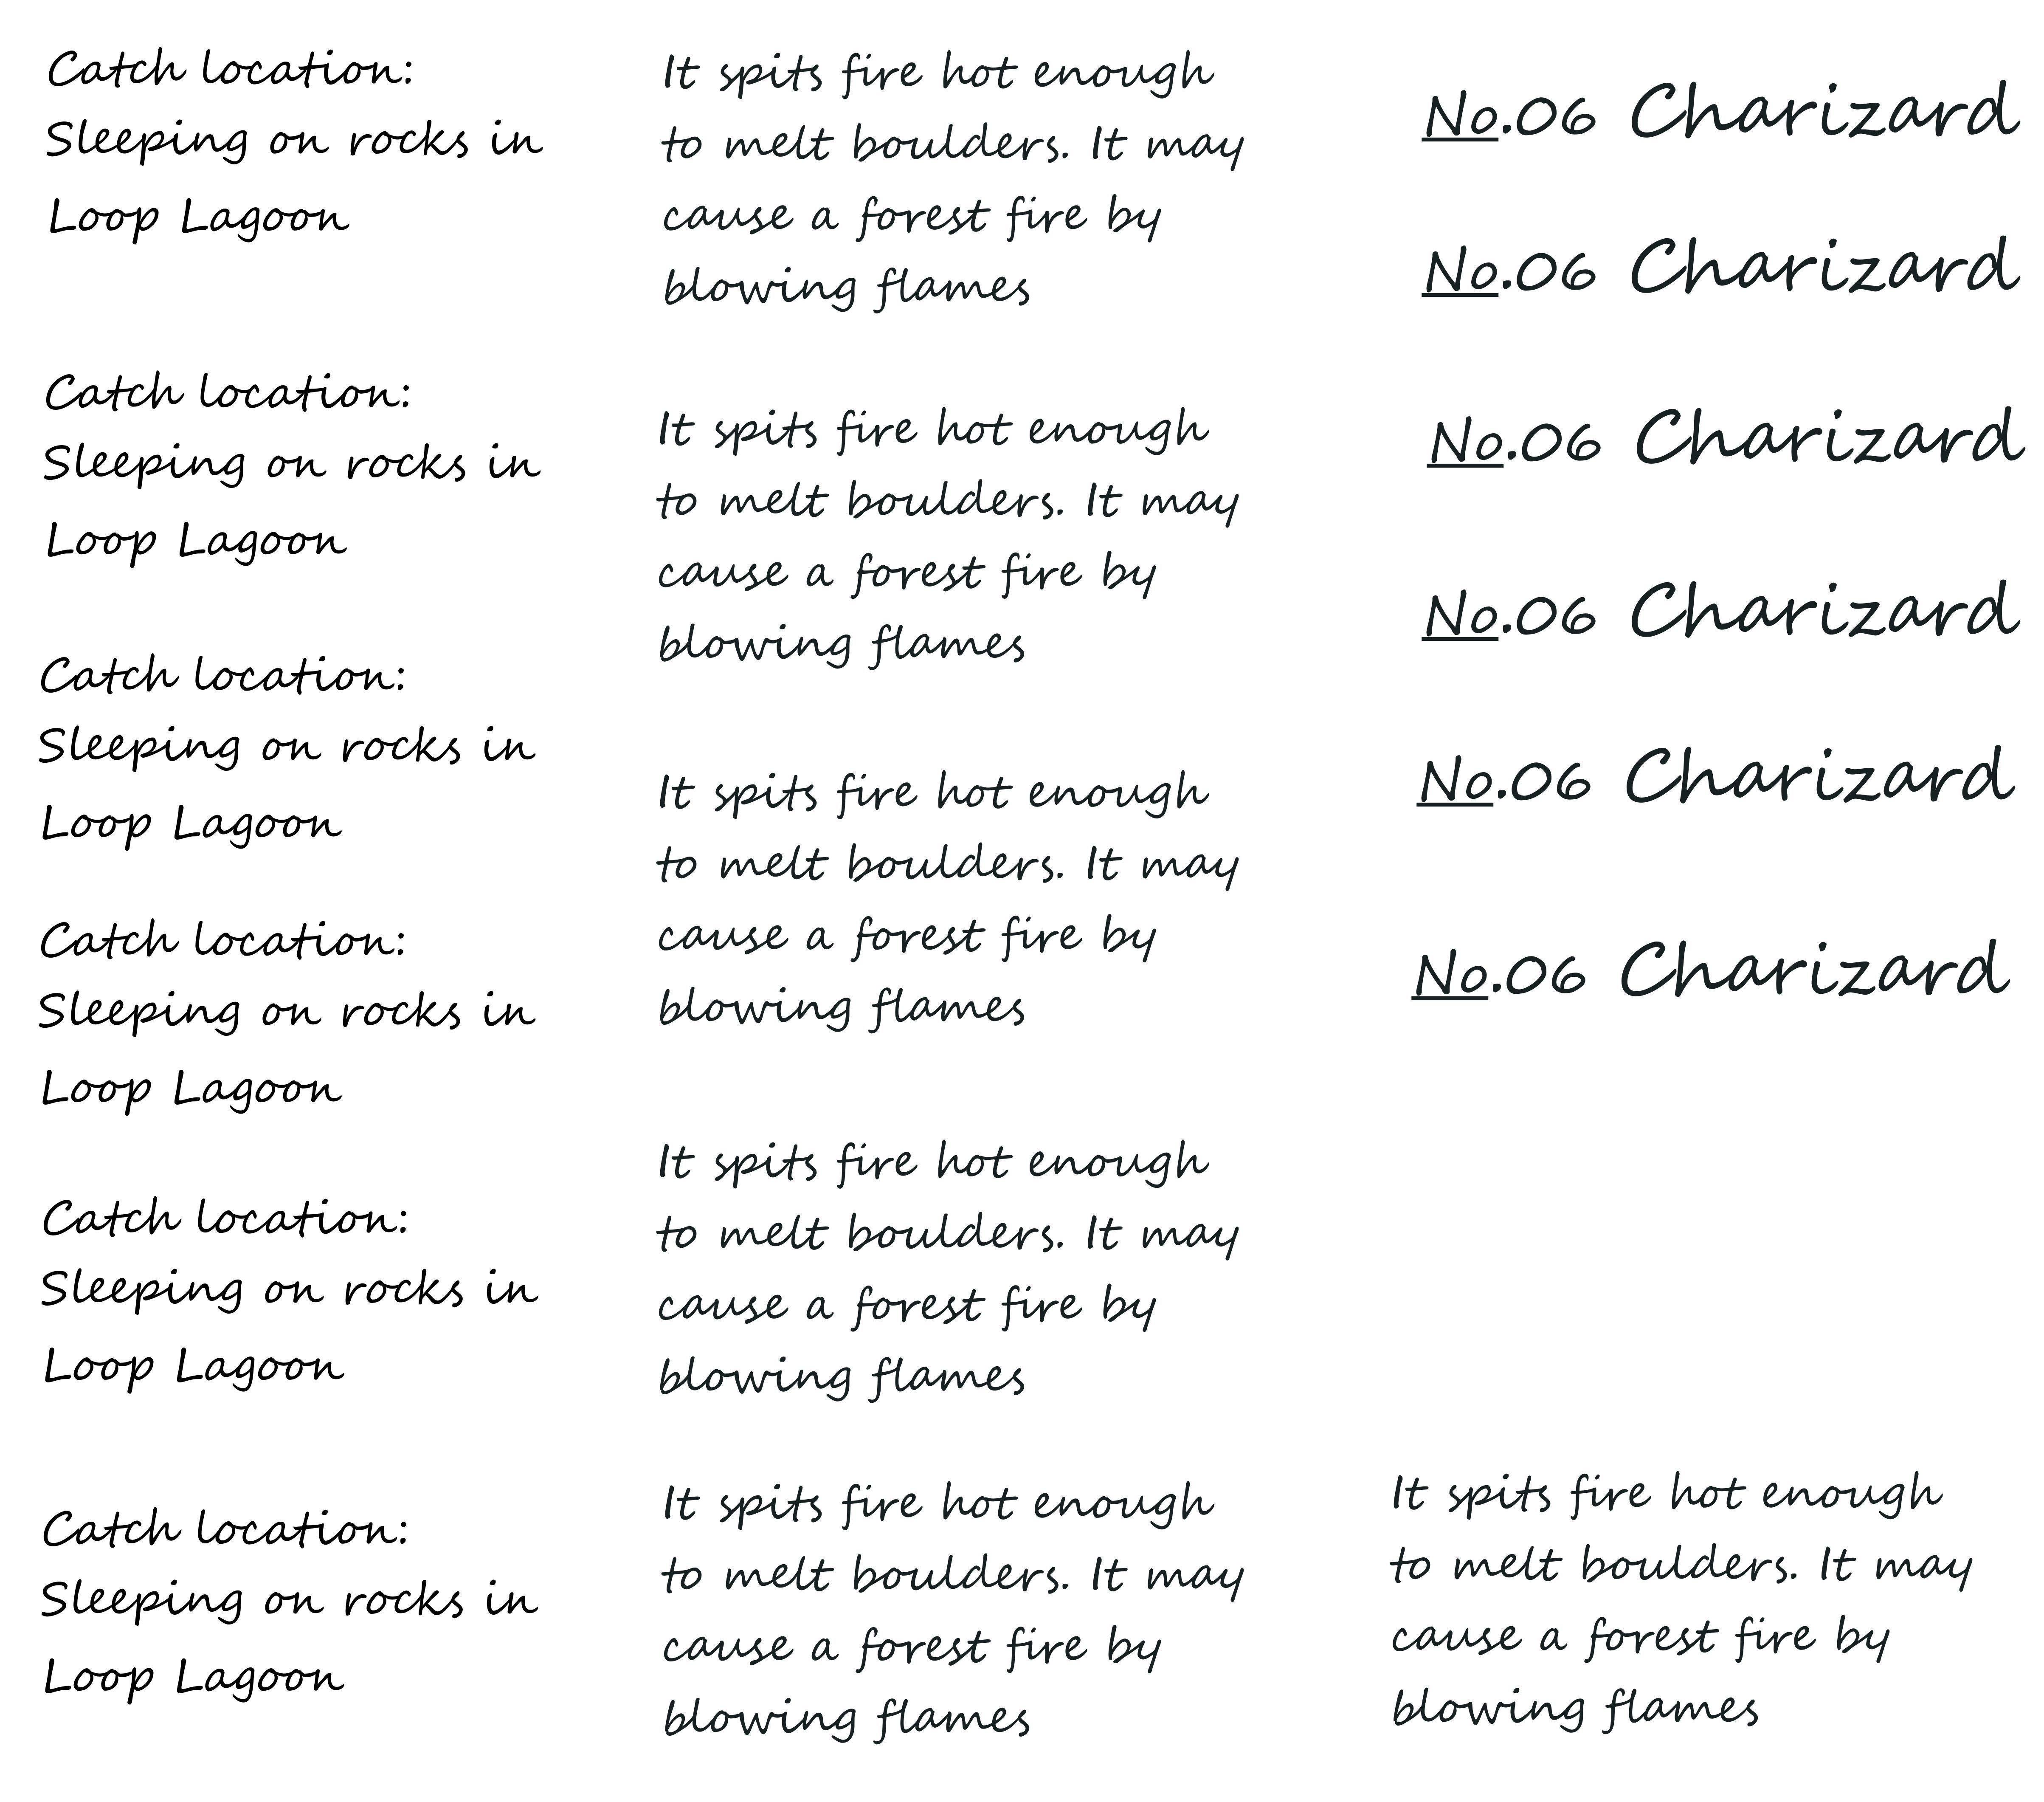 Catch location:
Sleeping on rocks in
Loop Lagoon
Catch location:
Sleeping on rocks in
Loop Lagoon
Catch location:
Sleeping on rocks in
Loop Lagoon
Catch location:
Sleeping on rocks in
Loop Lagoon
Catch location:
Sleeping on rocks in
Loop Lagoon
Catch location:
Sleeping on rocks in
Loop Lagoon
It spits fire hot enough
to melt boulders. It may
cause a forest fire by
blowing flames
It spits fire hot enough
to melt boulders. It may
cause a forest fire by
blowing flames
It spits fire hot enough
to melt boulders. It may
cause a forest fire by
blowing flames
It spits fire hot enough
to melt boulders. It may
cause a forest fire by
blowing flames
It spits fire hot enough
to melt boulders. It may
cause a forest fire by
blowing flames
No.06 Charizard
No.06 Charizard
No.06 Charizard
No.06 Charizard
No.06 Charizard
No.06 Charizard
It spits fire hot enough
to melt boulders. It may
cause a forest fire by
blowing flames